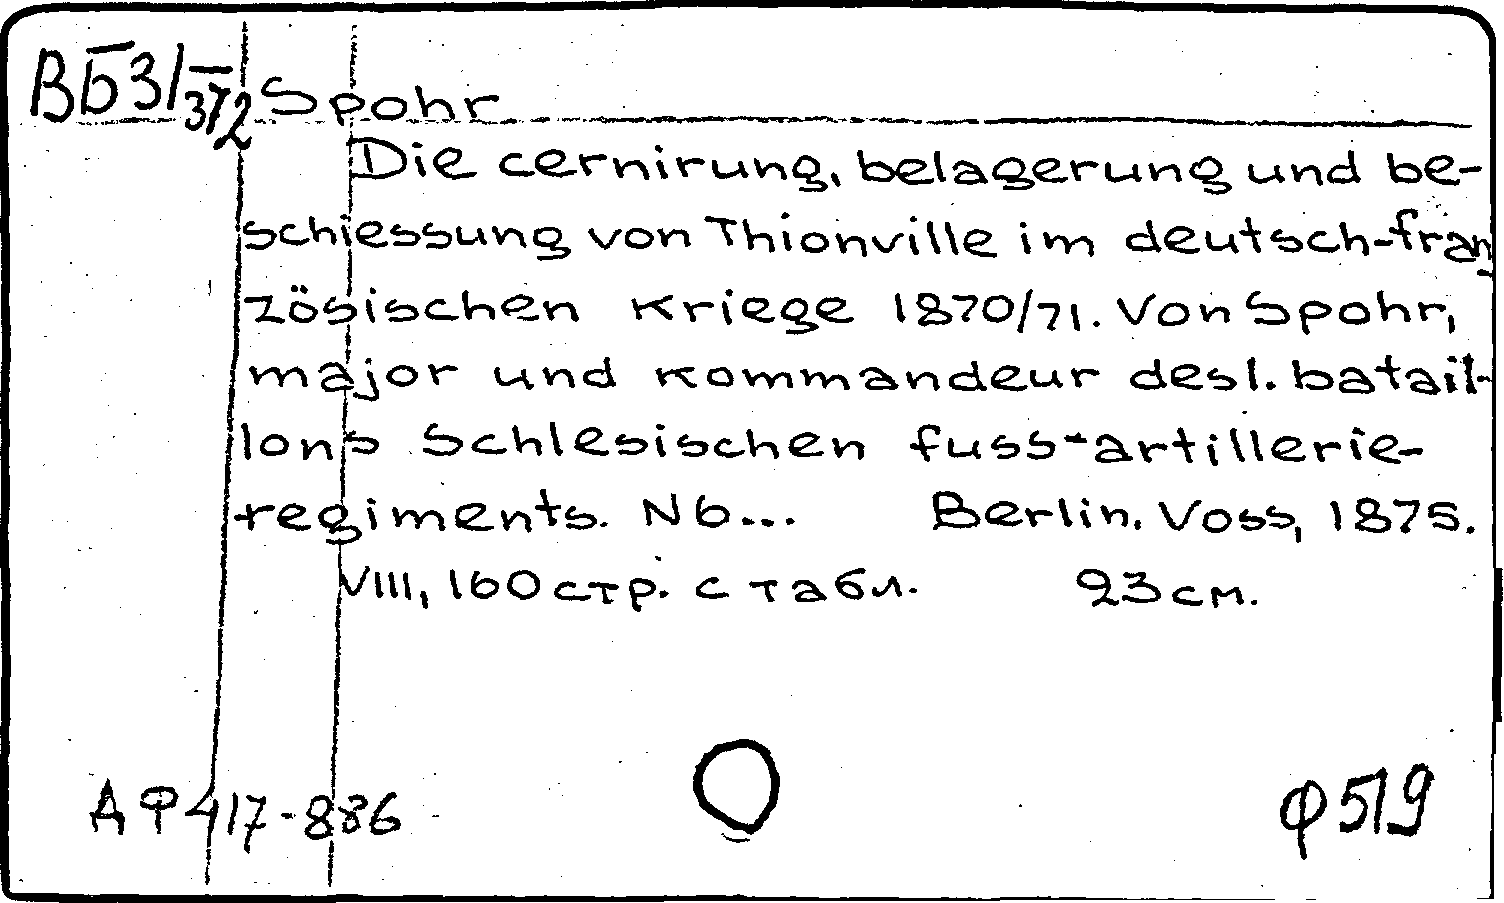 ВБ 31/372 Spohr
Die cernirung, belagerung und be-
schiessung von Thionville im deutsch-fran-
zösischen kriege 1870/71. Von Spohr,
major und kommandeur des 1. batail-
lons Schlesischen fuss-artillerie-
regiments. N 6... Berlin. Voss, 1875.
VIII, 160 стр. с табл. 23 см.
АФ 417-886 Ф 519